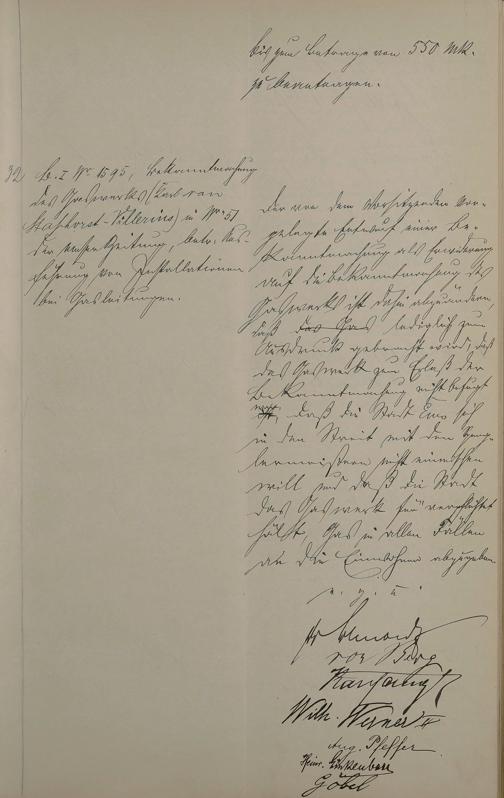 bis zum Betrage von 550 Mk.
zu beantragen.
32 B. I Nr. 1595, Bekanntmachung
des Gaswerks (Carl van
in Nr. 51
der Emser Zeitung, betr. Aus-
führung von Installationen
bei Gasleitungen.
Der von dem Vorsitzenden vor-
gelegte Entwurf einer Be-
kanntmachung als Erwiderung
auf die Bekanntmachung des
Gaswerks ist dahin abzuändern,
daß das Gas lediglich zum
Ausdruck gebracht wird, daß
das Gaswerk zum Erlaß der
Bekanntmachung nicht befugt
daß die Stadt Ems sich
in den Streit mit den Speng-
lermeistern nicht einmischen
will und daß die Stadt
das Gaswerk für verpflichtet
hält, Gas in allen Fällen
an die Einwohner abzugeben.
v. g. u.
von Berg
Wilh. Werner II
Aug. Pfeffer
Heinr. Linkenbach
Göbel